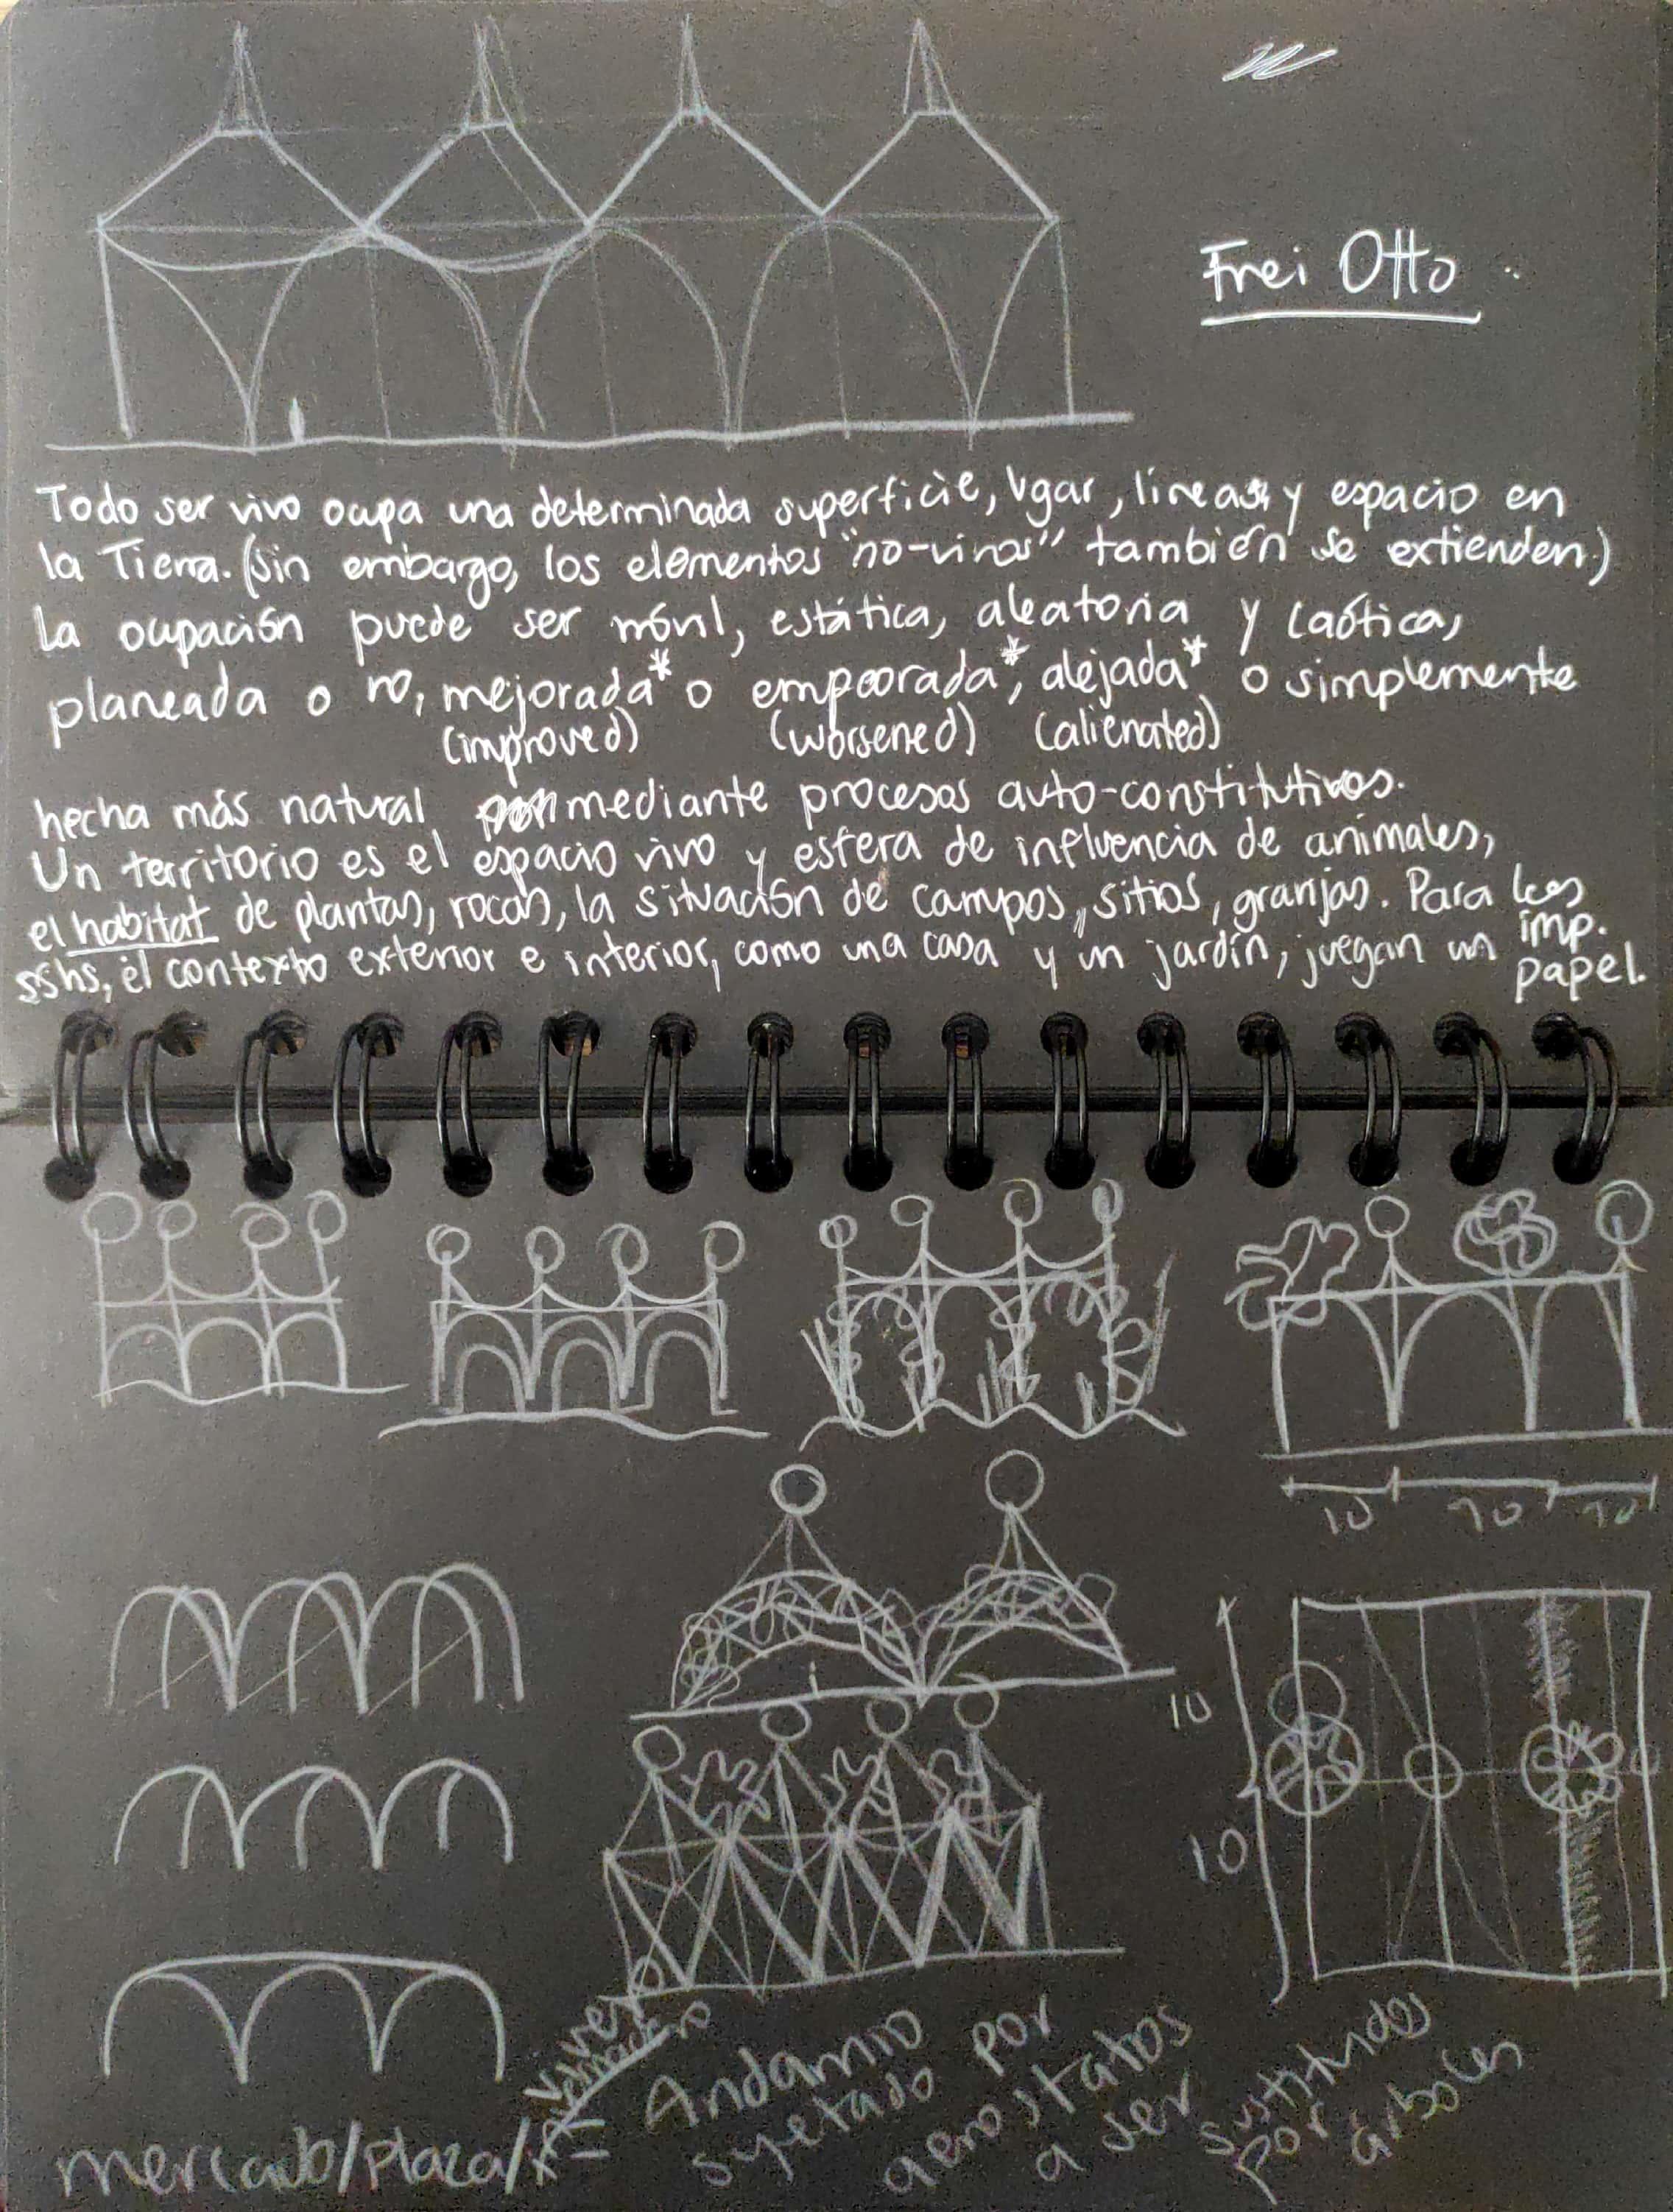 Frei Otto
Todo ser vivo ocupa una determinada superficie, lugar, líneas, y espacio en
la Tierra. (Sin embargo, los elementos "no-vivos" también se extienden.)
La ocupación puede ser móvil, estática, aleatoria y caótica,
planeada o no, mejorada* o empeorada*, alejada* o simplemente
(improved) (worsened) (alienated)
hecha más natural mediante procesos auto-constitutivos.
Un territorio es el espacio vivo y esfera de influencia de animales,
el habitat de plantas, rocas, la situación de campos, sitios, granjas. Para los
sshs, el contexto exterior e interior, como una casa y un jardín, juegan un imp.
papel.
10 10 10
10
10
mercado/plaza/
vivero
Andamio
sujetado por
aerostatos
a ser
sustituidos
por
árboles